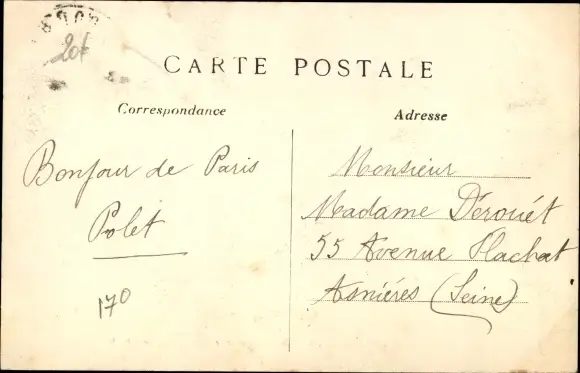 20f
CARTE POSTALE
Correspondance
Adresse
Bonjour de Paris
Polet
170
Monsieur
Madame Dérouét
55 Avenue Flachat
Asniéres (Seine)